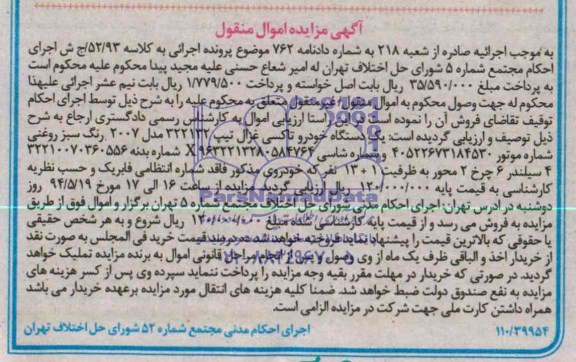 آگهی مزایده اموال منقول
به موجب اجرائیه صادره از شعبه ۲۱۸ به شماره دادنامه ۷۶۲ موضوع پرونده اجرائی به کلاسه ۵۲/۹۳/ج ش اجرای
احکام مجتمع شماره ۵ شورای حل اختلاف تهران له امیر شعاع حسنی علیه مجید پیدا محکوم علیه محکوم است
به پرداخت مبلغ ۳۵/۵۹۰/۰۰۰ ریال بابت اصل خواسته و پرداخت ۱/۷۷۹/۵۰۰ ریال بابت نیم عشر اجرائی علیهذا
محکوم له جهت وصول محکوم به اموال منقول/ غیرمنقول متعلق به محکوم علیه را به شرح ذیل توسط اجرای احکام
توقیف تقاضای فروش آن را نموده است در این راستا ارزیابی اموال به کارشناس رسمی دادگستری ارجاع به شرح
ذیل توصیف و ارزیابی گردیده است: یک دستگاه خودرو تاکسی غزال تیپ ۳۲۲۱۳۲ مدل ۲۰۰۷ رنگ سبز روغنی
شماره موتور ۴۰۵۲۲۶۷۳۱۸۴۵۳۰ و شماره شاسی X۹۶۳۲۲۱۳۲۸۰۵۸۴۷۶۶ شماره بدنه ۳۲۲۱۰۰۷۰۳۶۰۵۵۶
۴ سیلندر ۶ چرخ ۲ محور به ظرفیت ۱+۱۳ نفر که خودروی مذکور فاقد شماره انتظامی فابریک و حسب نظریه
کارشناسی به قیمت پایه ۱۲۰/۰۰۰/۰۰۰ ریال ارزیابی گردید مزایده از ساعت ۱۶ الی ۱۷ مورخ ۹۴/۵/۱۹ روز
دوشنبه در آدرس تهران: اجرای احکام مدنی شورای حل اختلاف مجتمع شماره ۵ تهران برگزار و اموال فوق از طریق
مزایده به فروش می رسد و از قیمت پایه کارشناسی شده مبلغ ۱۲۰/۰۰۰/۰۰۰ ریال شروع و به هر شخص حقیقی
یا حقوقی که بالاترین قیمت را پیشنهاد نماید فروخته خواهد شد. ده درصد قیمت خرید فی المجلس به صورت نقد
از خریدار اخذ و الباقی ظرف یک ماه از وی وصول و پس از انجام مراحل قانونی اموال به برنده مزایده تملیک خواهد
گردید. در صورتی که خریدار در مهلت مقرر بقیه وجه مزایده را پرداخت ننماید سپرده وی پس از کسر هزینه های
مزایده به نفع صندوق دولت ضبط خواهد شد. ضمنا کلیه هزینه های انتقال مورد مزایده برعهده خریدار می باشد
همراه داشتن کارت ملی جهت شرکت در مزایده الزامی است.
۱۱۰/۳۹۹۵۴ اجرای احکام مدنی مجتمع شماره ۵۲ شورای حل اختلاف تهران